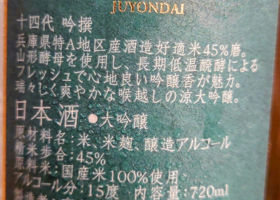 JUYONDAI
十四代 吟撰
兵庫県特A地区産酒造好適米45%磨。
山形酵母を使用し、長期低温醗酵による
フレッシュで心地良い吟醸香が魅力。
瑞々しく爽やかな喉越しの涼大吟醸。
日本酒 ●大吟醸
原材料名:米、米麹、醸造アルコール
精米歩合:45%
原料米:国産米100%使用
アルコール分:15度 内容量:720ml